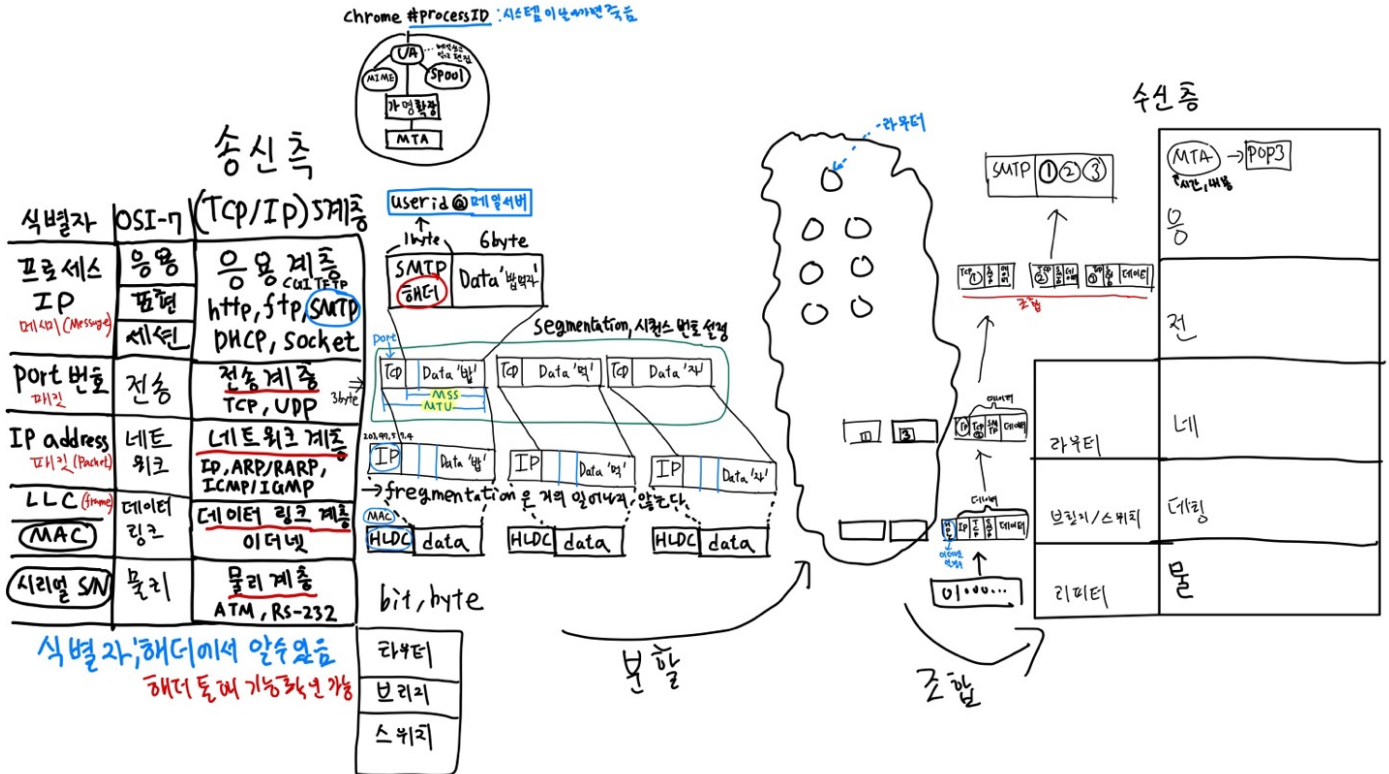 Chrome #processID : 시스템이 날아가면 죽음
UA
MIME
Spool
가명확장
MTA
송신측
식별자
OSI-7
(TCP/IP) 5계층
프로세스
IP
메시지(Message)
응용
표현
세션
응용 계층
CGI TFTP
http, ftp, SMTP
DHCP, Socket
Port 번호
패킷
전송
전송 계층
TCP, UDP
IP address
패킷(Packet)
네트
워크
네트워크 계층
IP, ARP/RARP,
ICMP/IGMP
LLC (frame)
MAC
데이터
링크
데이터 링크 계층
이더넷
시리얼 S/N
물리
물리 계층
ATM, RS-232
식별자; 해더에서 알수있음
해더 통해 기능확인 가능
userid@메일서버
1byte
6byte
SMTP
해더
Data '밥먹자'
segmentation, 시퀀스 번호 설정
port
3byte
TCP
Data '밥'
TCP
Data '먹'
TCP
Data '자'
MSS
MTU
IP
Data '밥'
IP
Data '먹'
IP
Data '자'
→ fregmentation 은 거의 일어나지 않는단
MAC
HLDC
data
HLDC
data
HLDC
data
bit, byte
라우터
브리지
스위치
분할
라우터
1
3
조합
수신층
SMTP ① ② ③
TCP ①
TCP ②
③
데이터
조합
데이터
IP
TCP
SMTP
데이터
데이터
IP
데이터
01000...
MTA → POP3
시간, 내용
응
전
라우터
네
브릿지/스위치
데링
리피터
물